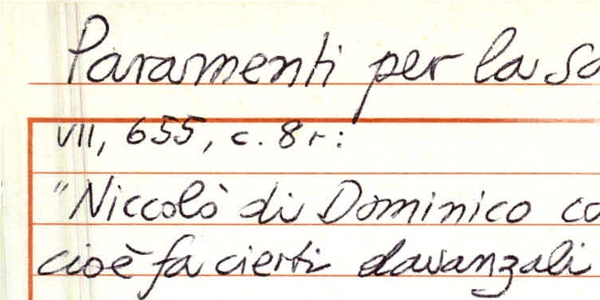 Paramenti per la
VII, 655, c. 8r:
"Niccolò di Dominico
cioè fa cierti davanzali